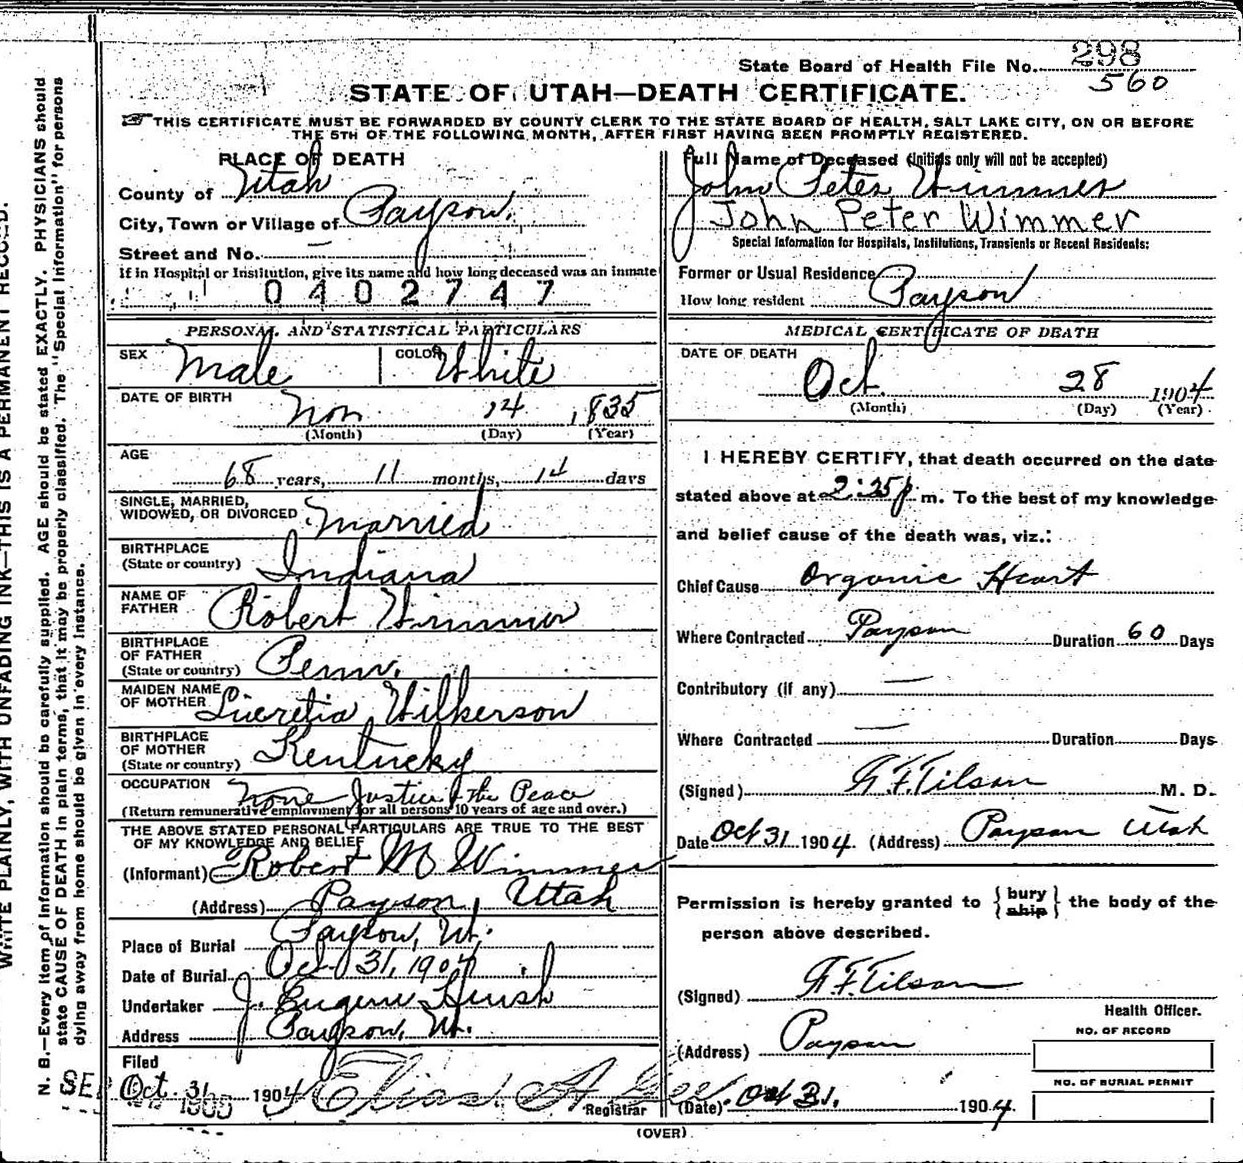 State Board of Health File No. 298
560
STATE OF UTAH—DEATH CERTIFICATE.
THIS CERTIFICATE MUST BE FORWARDED BY COUNTY CLERK TO THE STATE BOARD OF HEALTH, SALT LAKE CITY, ON OR BEFORE
THE 5TH OF THE FOLLOWING MONTH, AFTER FIRST HAVING BEEN PROMPTLY REGISTERED.
PLACE OF DEATH
County of Utah
City, Town or Village of Payson.
Street and No. —
if in Hospital or Institution, give its name and how long deceased was an inmate
0402747
Full Name of Deceased (Initials only will not be accepted)
John Peter Wimmer
John Peter Wimmer
Special Information for Hospitals, Institutions, Transients or Recent Residents:
Former or Usual Residence
How long resident Payson
PERSONAL AND STATISTICAL PARTICULARS
SEX Male COLOR White
DATE OF BIRTH Nov 14 1835
(Month) (Day) (Year)
AGE
68 years, 11 months, 14 days
SINGLE, MARRIED,
WIDOWED, OR DIVORCED Married
BIRTHPLACE
(State or country) Indiana
NAME OF
FATHER Robert Wimmer
BIRTHPLACE
OF FATHER
(State or country) Penn.
MAIDEN NAME
OF MOTHER Lucretia Wilkerson
BIRTHPLACE
OF MOTHER
(State or country) Kentucky
OCCUPATION None Justice of the Peace
(Return remunerative employment for all persons 10 years of age and over.)
THE ABOVE STATED PERSONAL PARTICULARS ARE TRUE TO THE BEST
OF MY KNOWLEDGE AND BELIEF
(Informant) Robert M Wimmer
(Address) Payson, Utah
Place of Burial Payson, Ut.
Date of Burial Oct 31, 1904
Undertaker J. Eugene Huish
Address Payson, Ut.
Filed
Oct. 31 1904 Elias A Gee.
Registrar
MEDICAL CERTIFICATE OF DEATH
DATE OF DEATH
Oct. 28 1904
(Month) (Day) (Year)
I HEREBY CERTIFY, that death occurred on the date
stated above at 2:25 p m. To the best of my knowledge
and belief cause of the death was, viz.:
Chief Cause Organic Heart
Where Contracted Payson Duration 60 Days
Contributory (if any) —
Where Contracted — Duration Days
(Signed) A F Tilson M. D.
Date Oct 31 1904. (Address) Payson Utah
Permission is hereby granted to {bury ship} the body of the
person above described.
(Signed) A F Tilson
Health Officer.
(Address) Payson
NO. OF RECORD
NO. OF BURIAL PERMIT
(Date) Oct 31. 1904.
(OVER)
WRITE PLAINLY, WITH UNFADING INK—THIS IS A PERMANENT RECORD.
N. B.—Every item of information should be carefully supplied. AGE should be stated EXACTLY. PHYSICIANS should
state CAUSE OF DEATH in plain terms, that it may be properly classified. The "Special Information" for persons
dying away from home should be given in every instance.